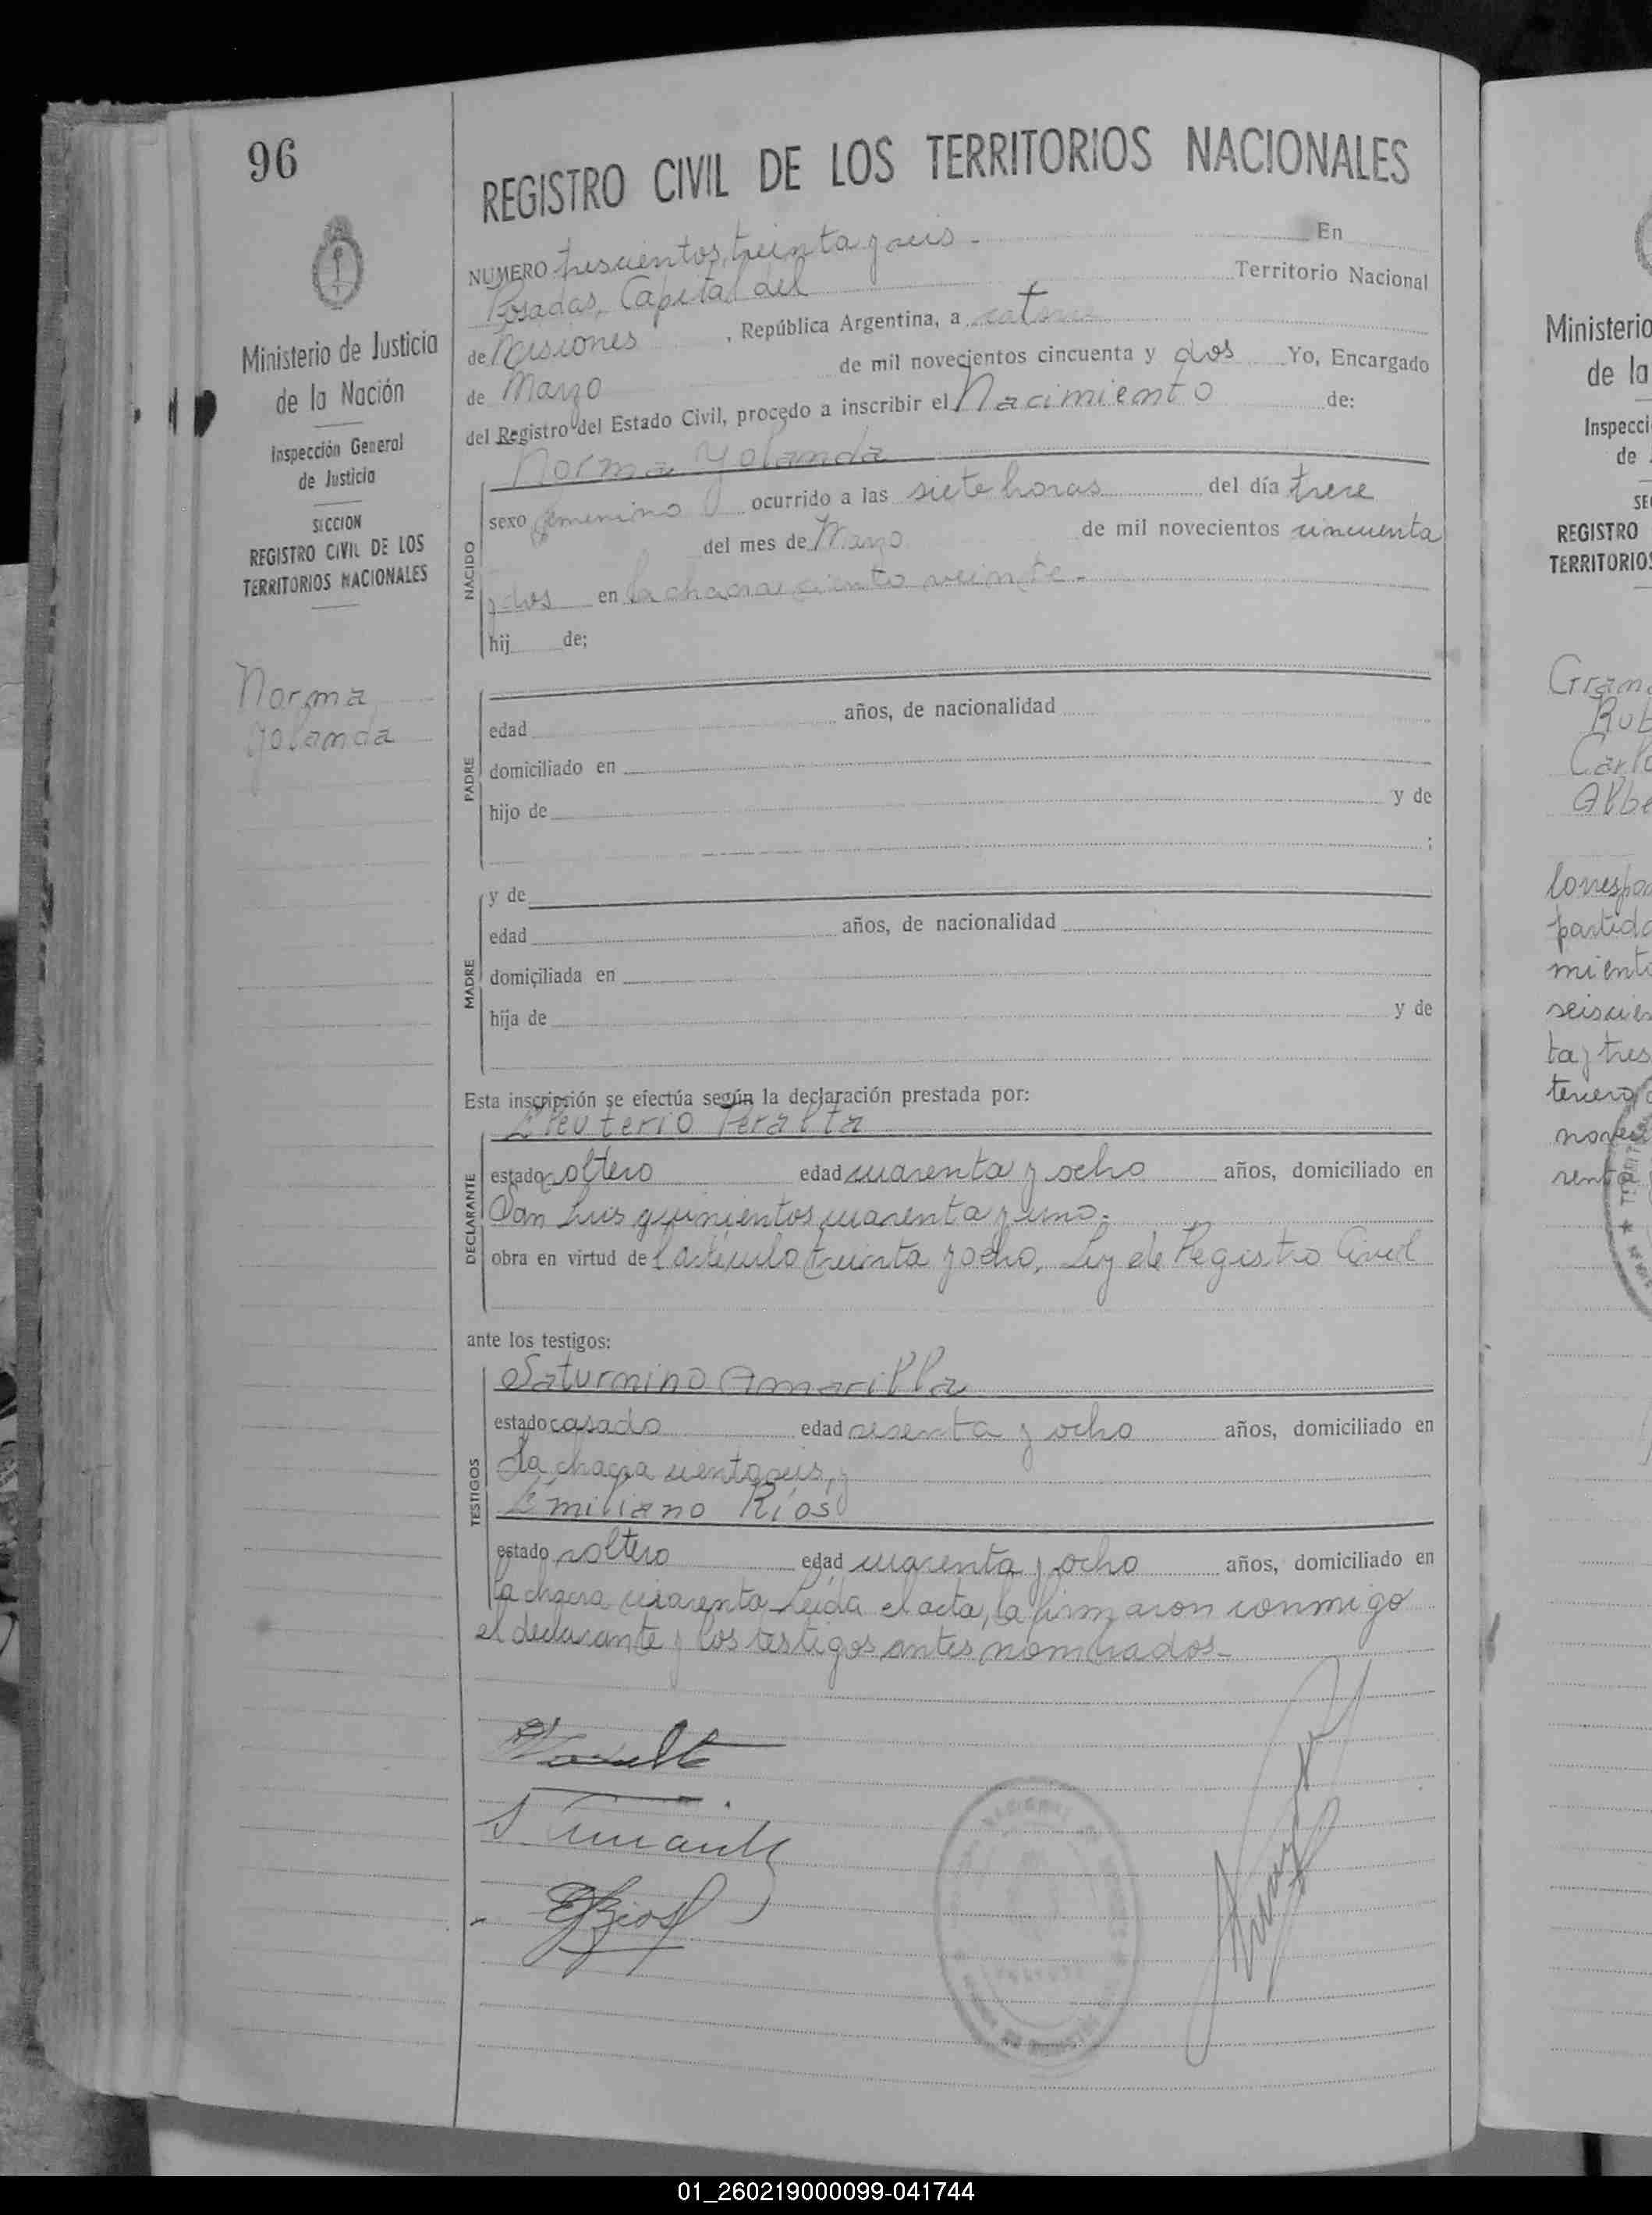 96
REGISTRO CIVIL DE LOS TERRITORIOS NACIONALES
Ministerio de Justicia
de la Nación
Inspección General
de Justicia
SECCION
REGISTRO CIVIL DE LOS
TERRITORIOS NACIONALES
Norma
Yolanda
NUMERO trescientos treinta y seis.- En
Posadas, Capital del Territorio Nacional
de Misiones, República Argentina, a catorce
de Marzo de mil novecientos cincuenta y dos Yo, Encargado
del Registro del Estado Civil, procedo a inscribir el Nacimiento de:
NACIDO
Norma Yolanda
sexo femenino ocurrido a las siete horas del día trece
del mes de Marzo de mil novecientos cincuenta
y dos en la chacra ciento veinte.-
hij de;
PADRE
edad años, de nacionalidad
domiciliado en
hijo de y de
;
MADRE
y de
edad años, de nacionalidad
domiciliada en
hija de y de
Esta inscripción se efectúa según la declaración prestada por:
DECLARANTE
Eleuterio Peralta
estado soltero edad cuarenta y ocho años, domiciliado en
San Luis quinientos cuarenta y uno.
obra en virtud del artículo treinta y ocho, Ley de Registro Civil
ante los testigos:
TESTIGOS
Saturnino Amarilla
estado casado edad sesenta y ocho años, domiciliado en
la chacra ciento seis, y
Emiliano Ríos
estado soltero edad cuarenta y ocho años, domiciliado en
la chacra cuarenta. Leída el acta, la firmaron conmigo
el declarante y los testigos antes nombrados.-
E Rios
Ministerio
de la
Inspecci
de
SE
REGISTRO
TERRITORIOS
Rub
Carlo
Albe
partida
miento
ta y tres
01_260219000099-041744